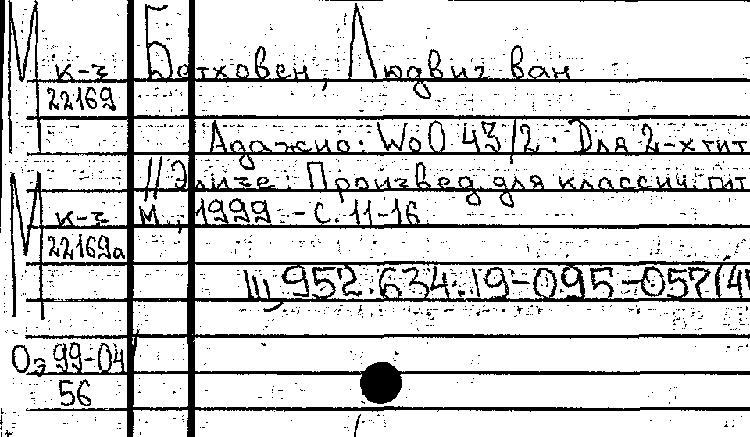 М к-з Бетховен, Людвиг ван
22169
Адажио: WoO 43/2. Для 2-х гит
// Элизе: Произвед. для классич. гит
М к-з М., 1999 - С. 11-16
22169а
Щ 952.634.19-095-057(4
Оэ 99-04/
56